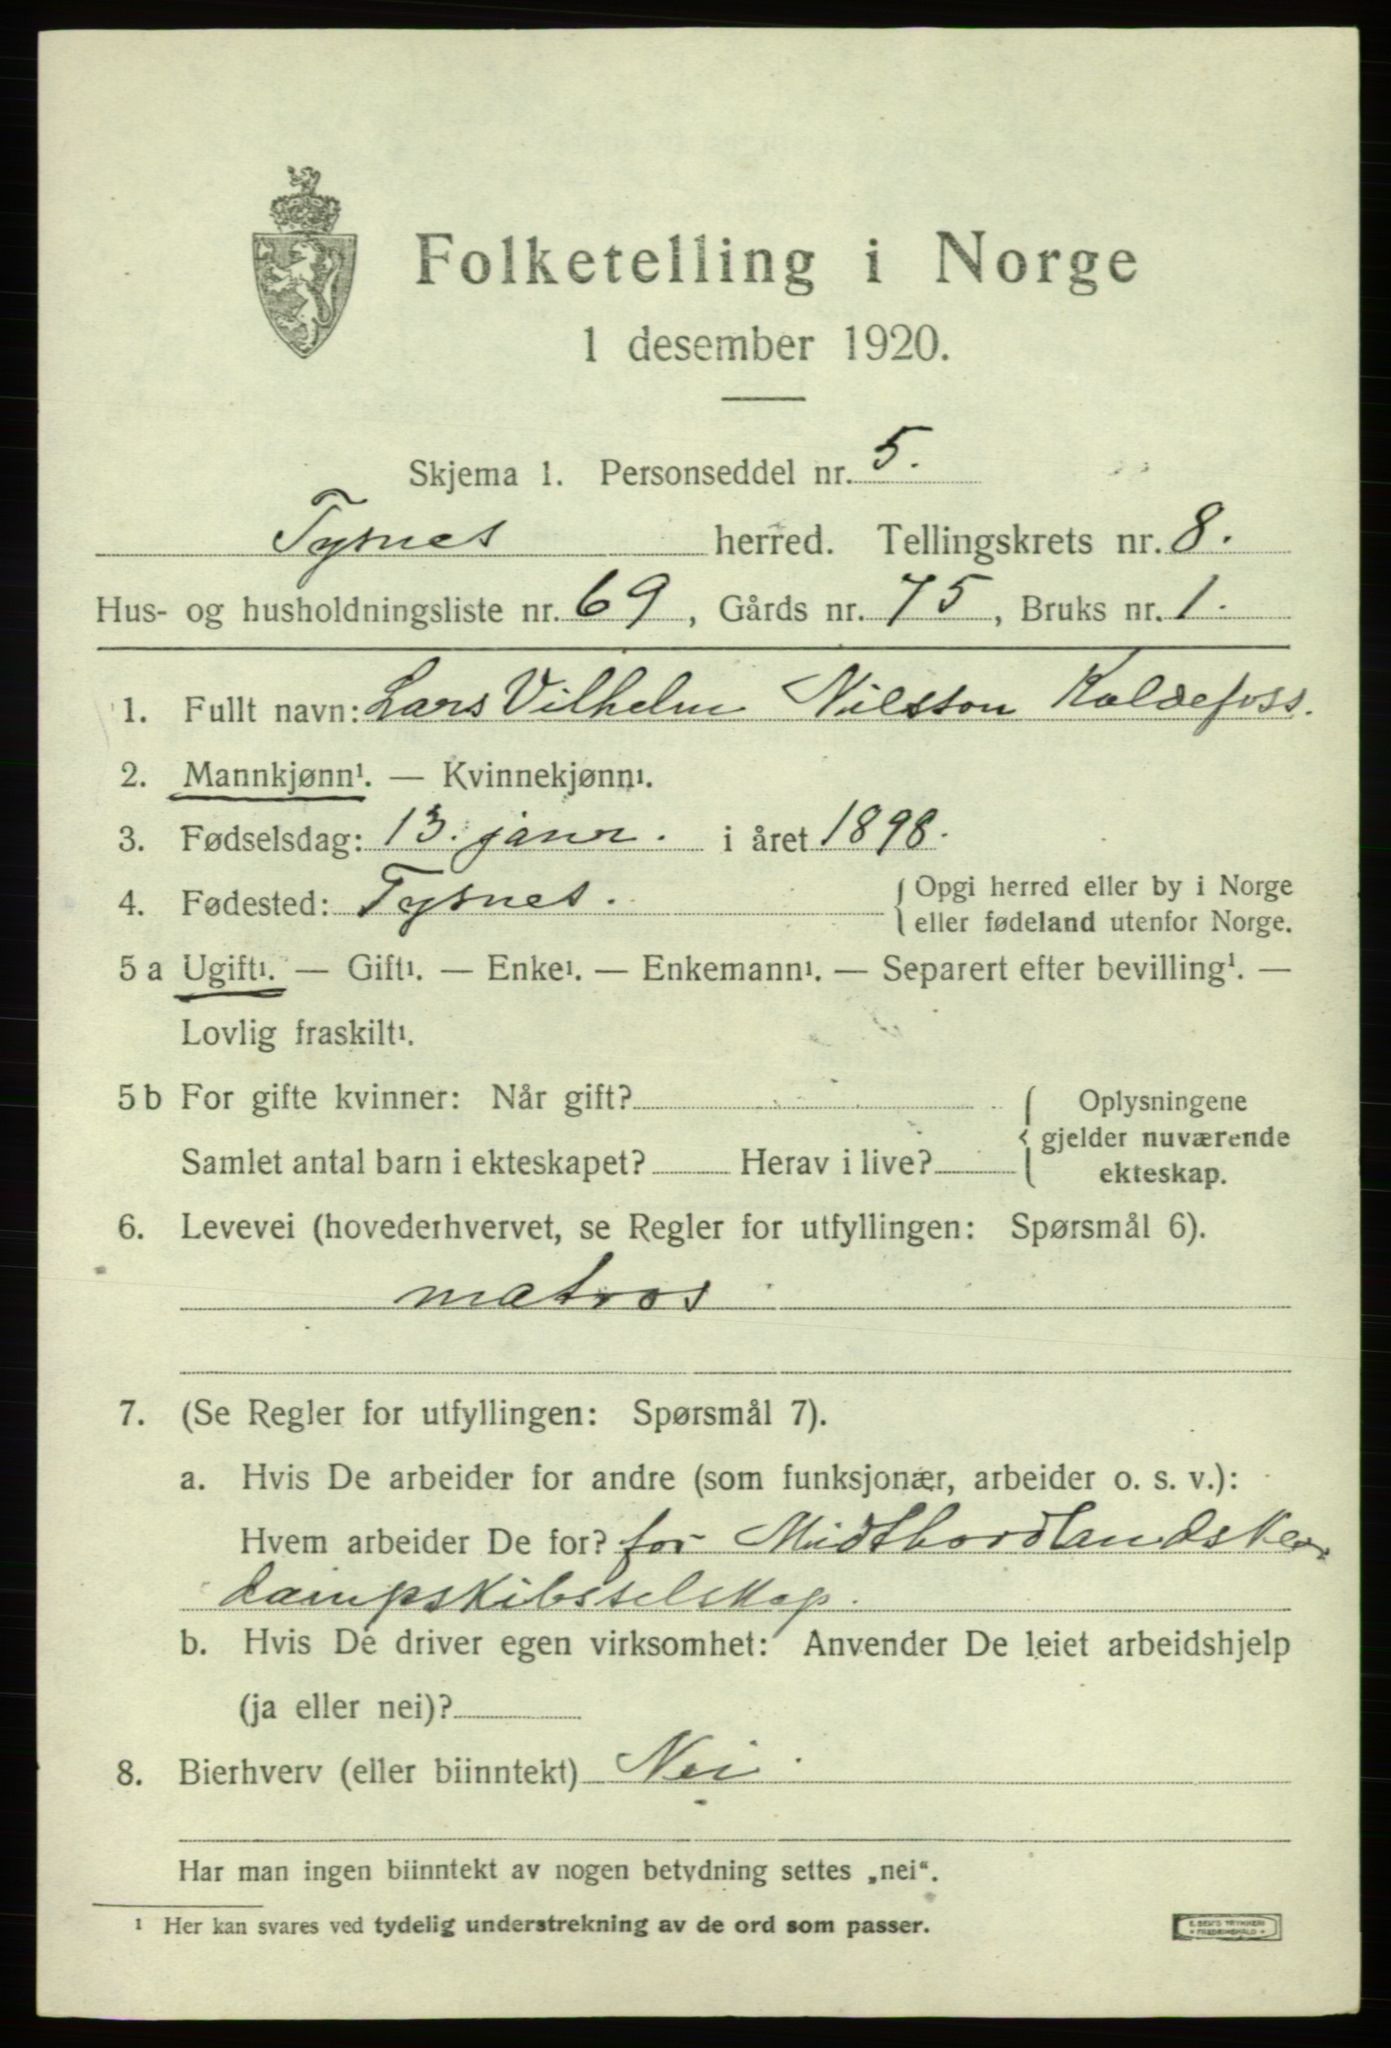 Folketelling i Norge
1 desember 1920.
Skjema 1. Personseddel nr. 5.
Tysnes herred. Tellingskrets nr. 8.
Hus- og husholdningsliste nr. 69, Gårds nr. 75, Bruks nr. 1.
1. Fullt navn: Lars Vilhelm Nilsson Koldefoss.
2. Mannkjønn¹. — Kvinnekjønn¹.
3. Fødselsdag: 13. janr. i året 1898.
4. Fødested: Tysnes. { Opgi herred eller by i Norge
eller fødeland utenfor Norge.
5 a Ugift¹. — Gift¹. — Enke¹. — Enkemann¹. — Separert efter bevilling¹. —
Lovlig fraskilt¹.
5 b For gifte kvinner: Når gift? { Oplysningene
gjelder nuværende
Samlet antal barn i ekteskapet? Herav i live?
ekteskap.
6. Levevei (hovederhvervet, se Regler for utfyllingen: Spørsmål 6).
matros
7. (Se Regler for utfyllingen: Spørsmål 7).
a. Hvis De arbeider for andre (som funksjonær, arbeider o. s. v.):
Hvem arbeider De for? for Midthordlandske
dampskibsselskap.
b. Hvis De driver egen virksomhet: Anvender De leiet arbeidshjelp
(ja eller nei)?
8. Bierhverv (eller biinntekt) Nei
Har man ingen biinntekt av nogen betydning settes „nei“.
¹ Her kan svares ved tydelig understrekning av de ord som passer.